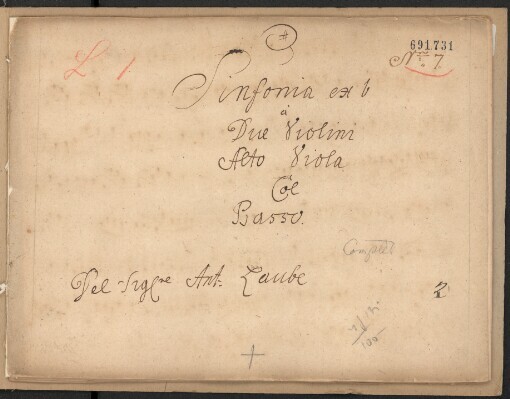 691.731
L. 1.
N:ro 7.
Sinfonia ex b
à
Due Violini
Alto Viola
Col
Basso.
Complet
Del Sig:re Ant: Laube
2